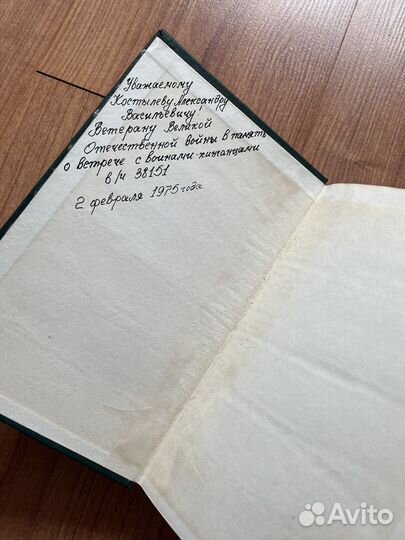 Уважаемому
Костылеву Александру
Васильевичу,
Ветерану Великой
Отечественной войны в память
о встрече с воинами-китанцами
в/ч 38151
2 февраля 1975 года
Avito